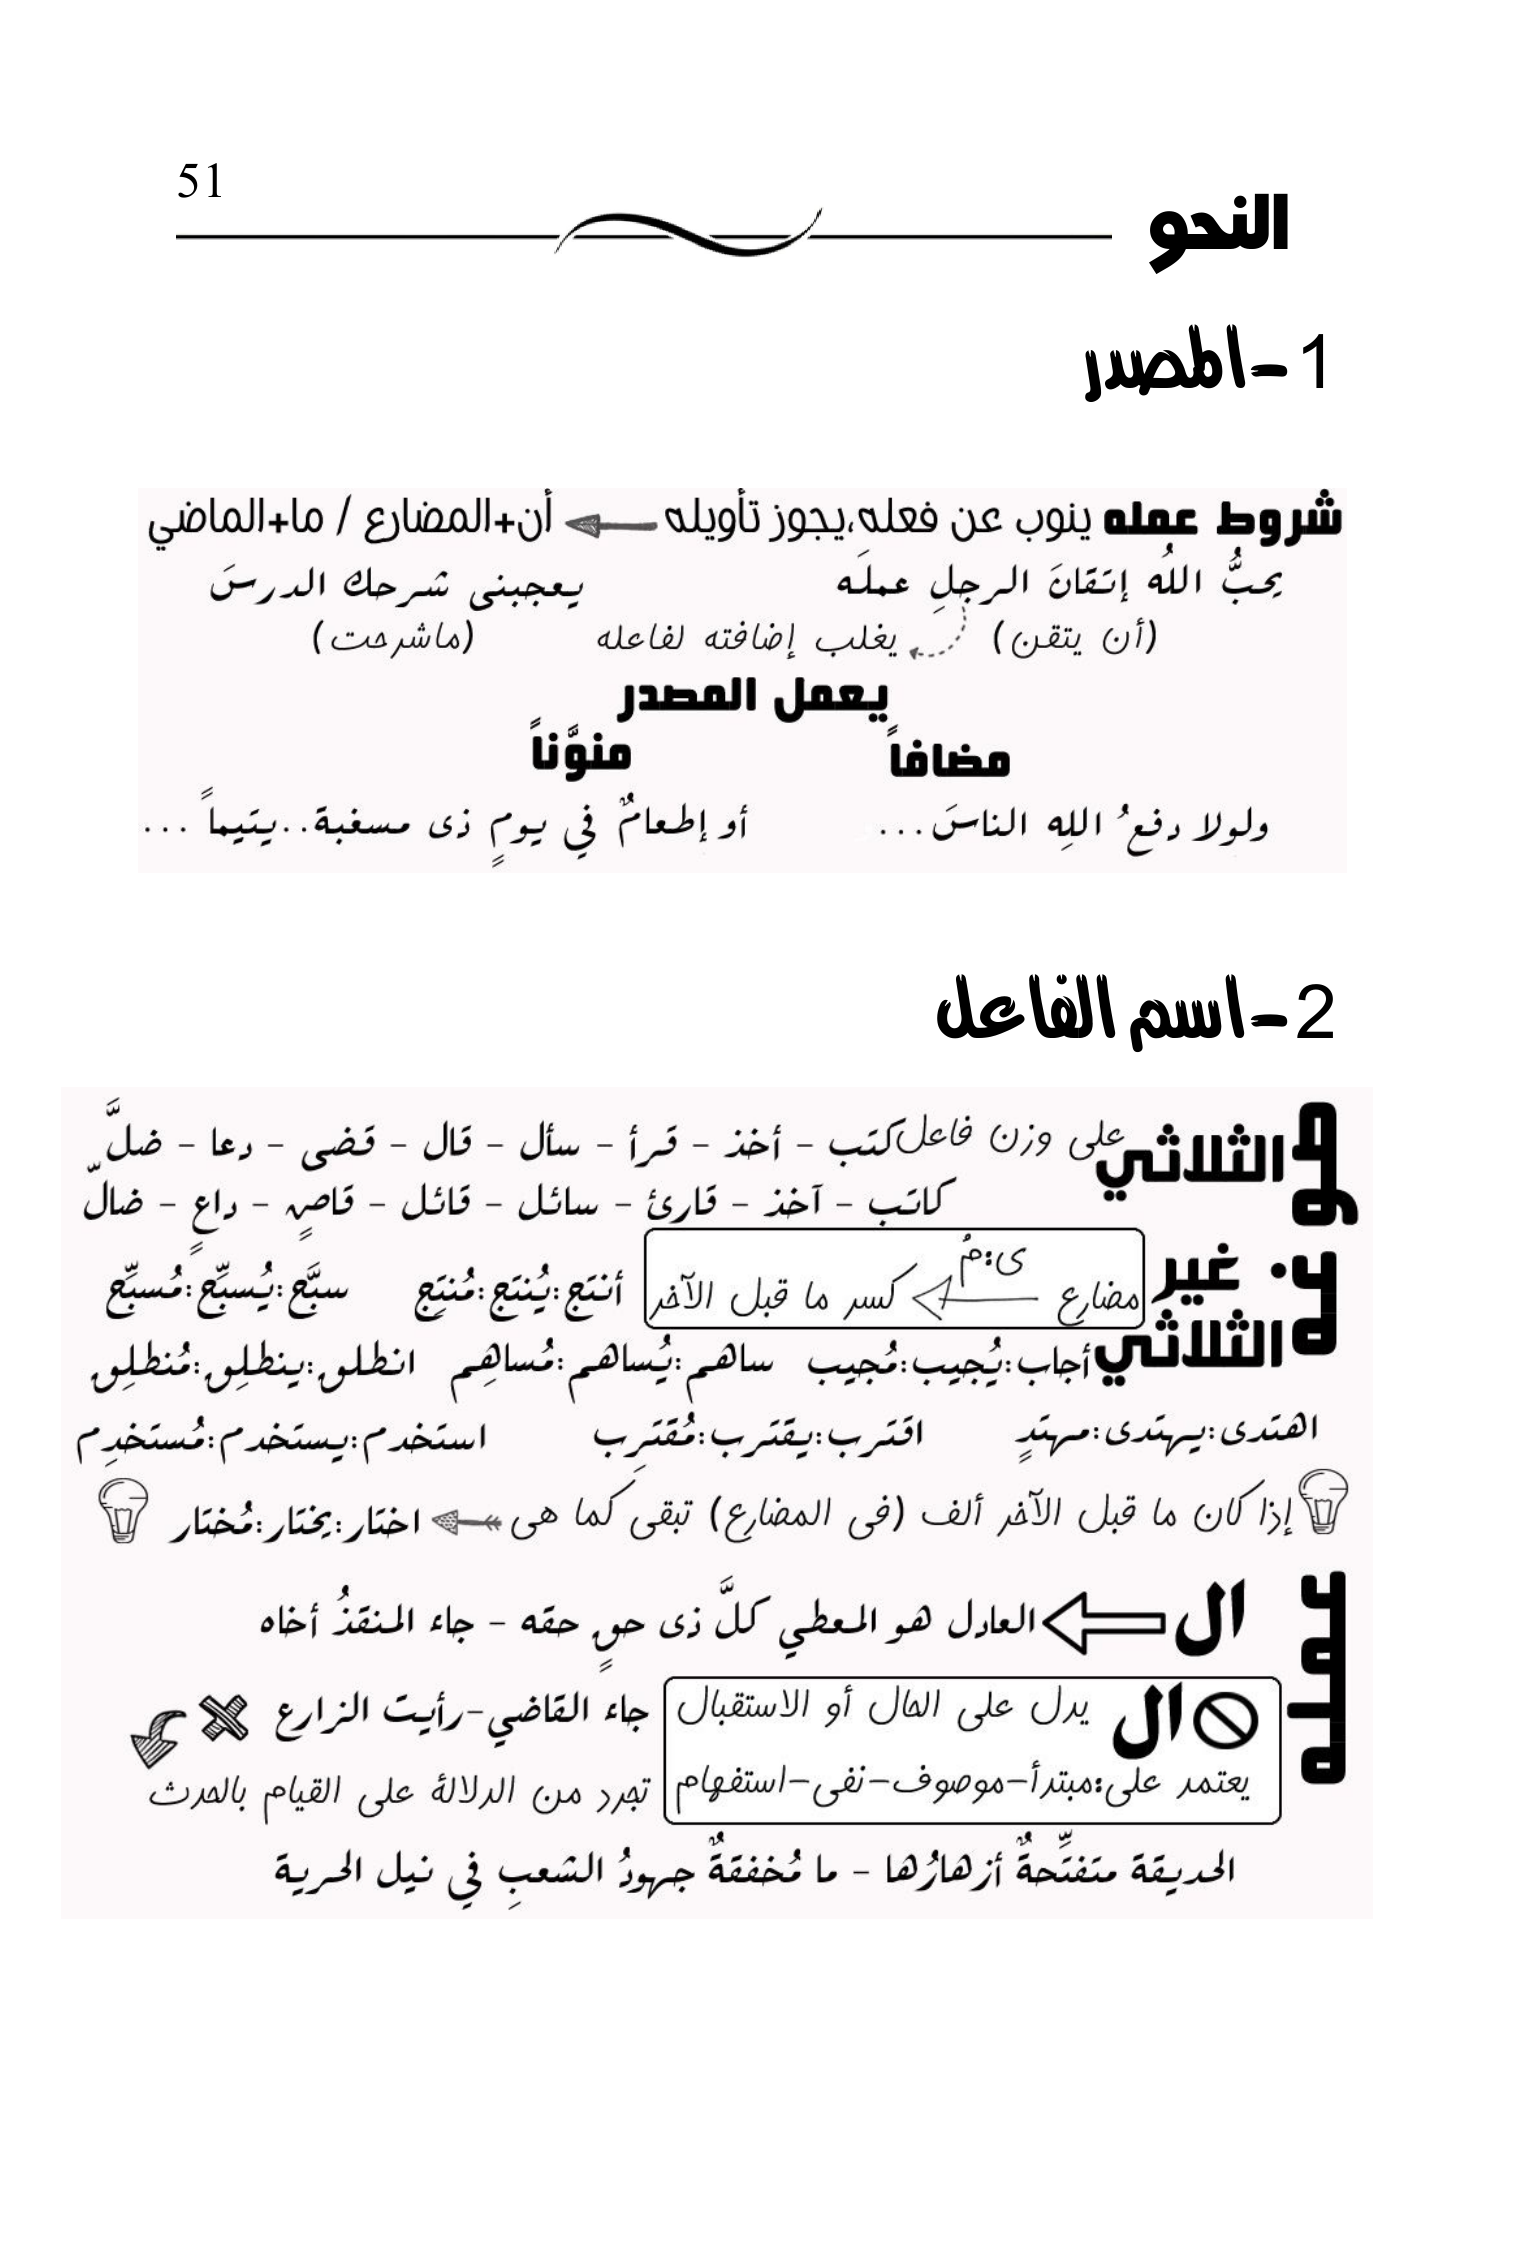 51
النحو
1-المصدر
شروط عمله ينوب عن فعله،يجوز تأويله أن+المضارع / ما+الماضي
يحبُّ اللهُ إتقانَ الرجلِ عملَه يعجبنى شرحك الدرسَ
(أن يتقن) يغلب إضافته لفاعله (ماشرحت)
يعمل المصدر
مضافاً منوَّناً
ولولا دفعُ اللهِ الناسَ... أو إطعامٌ في يومٍ ذى مسغبة..يتيماً ...
2-اسم الفاعل
صوغه
الثلاثي على وزن فاعل كتب - أخذ - قرأ - سأل - قال - قضى - دعا - ضلَّ
كاتب - آخذ - قارئ - سائل - قائل - قاضٍ - داعٍ - ضالّ
غير الثلاثي
ى:مُ
مضارع كسر ما قبل الآخر أنتج:يُنتج:مُنتِج سبَّح:يُسبِّح:مُسبِّح
أجاب:يُجيب:مُجيب ساهم:يُساهم:مُساهِم انطلق:ينطلِق:مُنطلِق
اهتدى:يهتدى:مهتدٍ اقترب:يقترب:مُقترِب استخدم:يستخدم:مُستخدِم
إذا كان ما قبل الآخر ألف (فى المضارع) تبقى كما هى اختار:يختار:مُختار
عمله
ال العادل هو المعطي كلَّ ذى حقٍ حقه - جاء المنقذُ أخاه
ال يدل على الحال أو الاستقبال جاء القاضي-رأيت الزارع
يعتمد على:مبتدأ-موصوف-نفى-استفهام تجرد من الدلالة على القيام بالحدث
الحديقة متفتِّحةٌ أزهارُها - ما مُخفقةٌ جهودُ الشعبِ في نيل الحرية